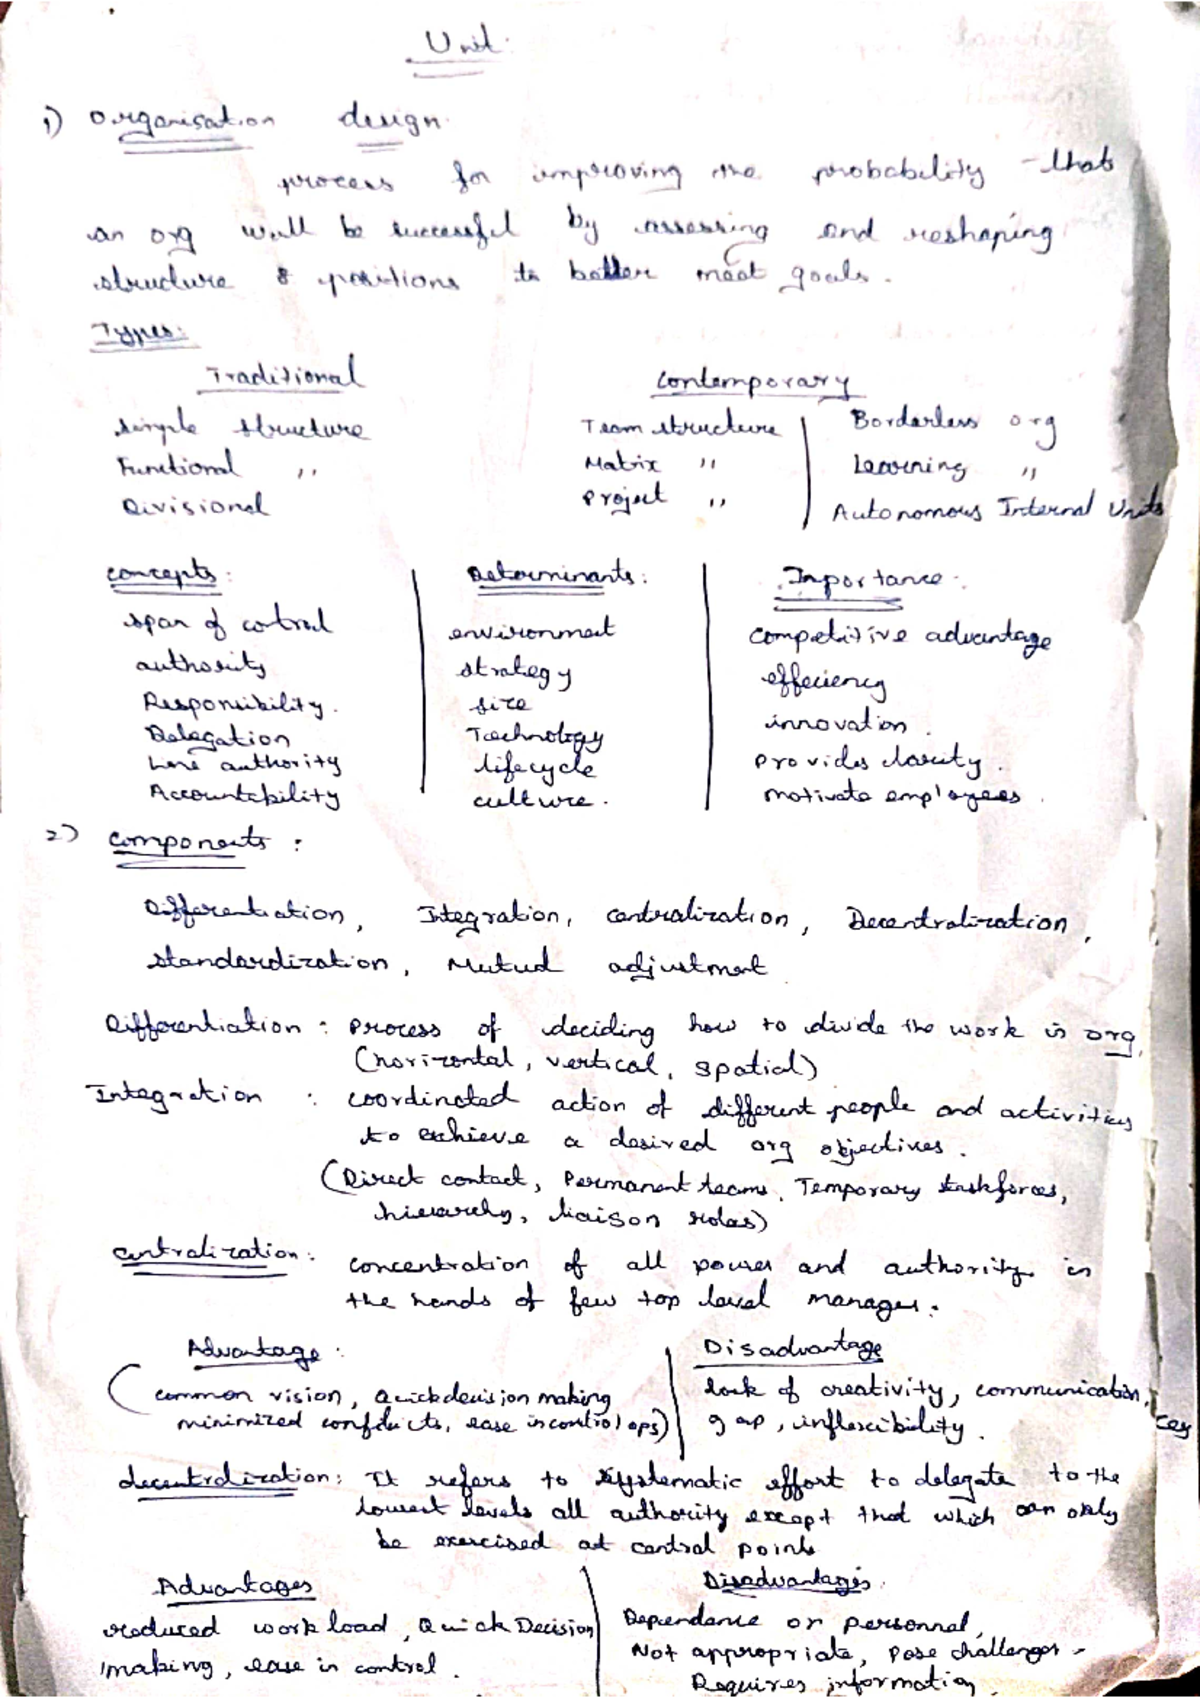 Unit:
1) Organisation design.
process for improving the probability that
an org will be successful by assessing and reshaping
structure & positions to better meet goals.
Types:
Traditional Contemporary
Simple structure Team structure Borderless org
Functional " Matrix " Learning "
Divisional Project " Autonomous Internal Units
concepts: Determinants: Importance:
span of control environment competitive advantage
authority strategy effeciency
Responsibility. size innovation.
Delegation Technology provides clarity.
Line authority lifecycle motivate employees.
Accountability culture.
2) components:
Differentiation, Integration, centralization, Decentralization,
standardization, Mutual adjustment
Differentiation: process of deciding how to divide the work in org.
(horizontal, vertical, spatial)
Integration : coordinated action of different people and activities
to achieve a desired org objectives.
(Direct contact, Permanent teams, Temporary taskforces,
hierarchy, liaison roles)
centralization: concentration of all power and authority in
the hands of few top level manager.
Advantage: Disadvantage
(common vision, Quick decision making lack of creativity, communication
minimized conflicts, ease in control ops) gap, inflexibility.
decentralization: It refers to systematic effort to delegate to the
lowest levels all authority except that which can only
be exercised at central points
Advantages Disadvantages.
reduced work load, Quick Decision Dependance on personnel,
making, ease in control. Not appropriate, Pose challenges
Requires information